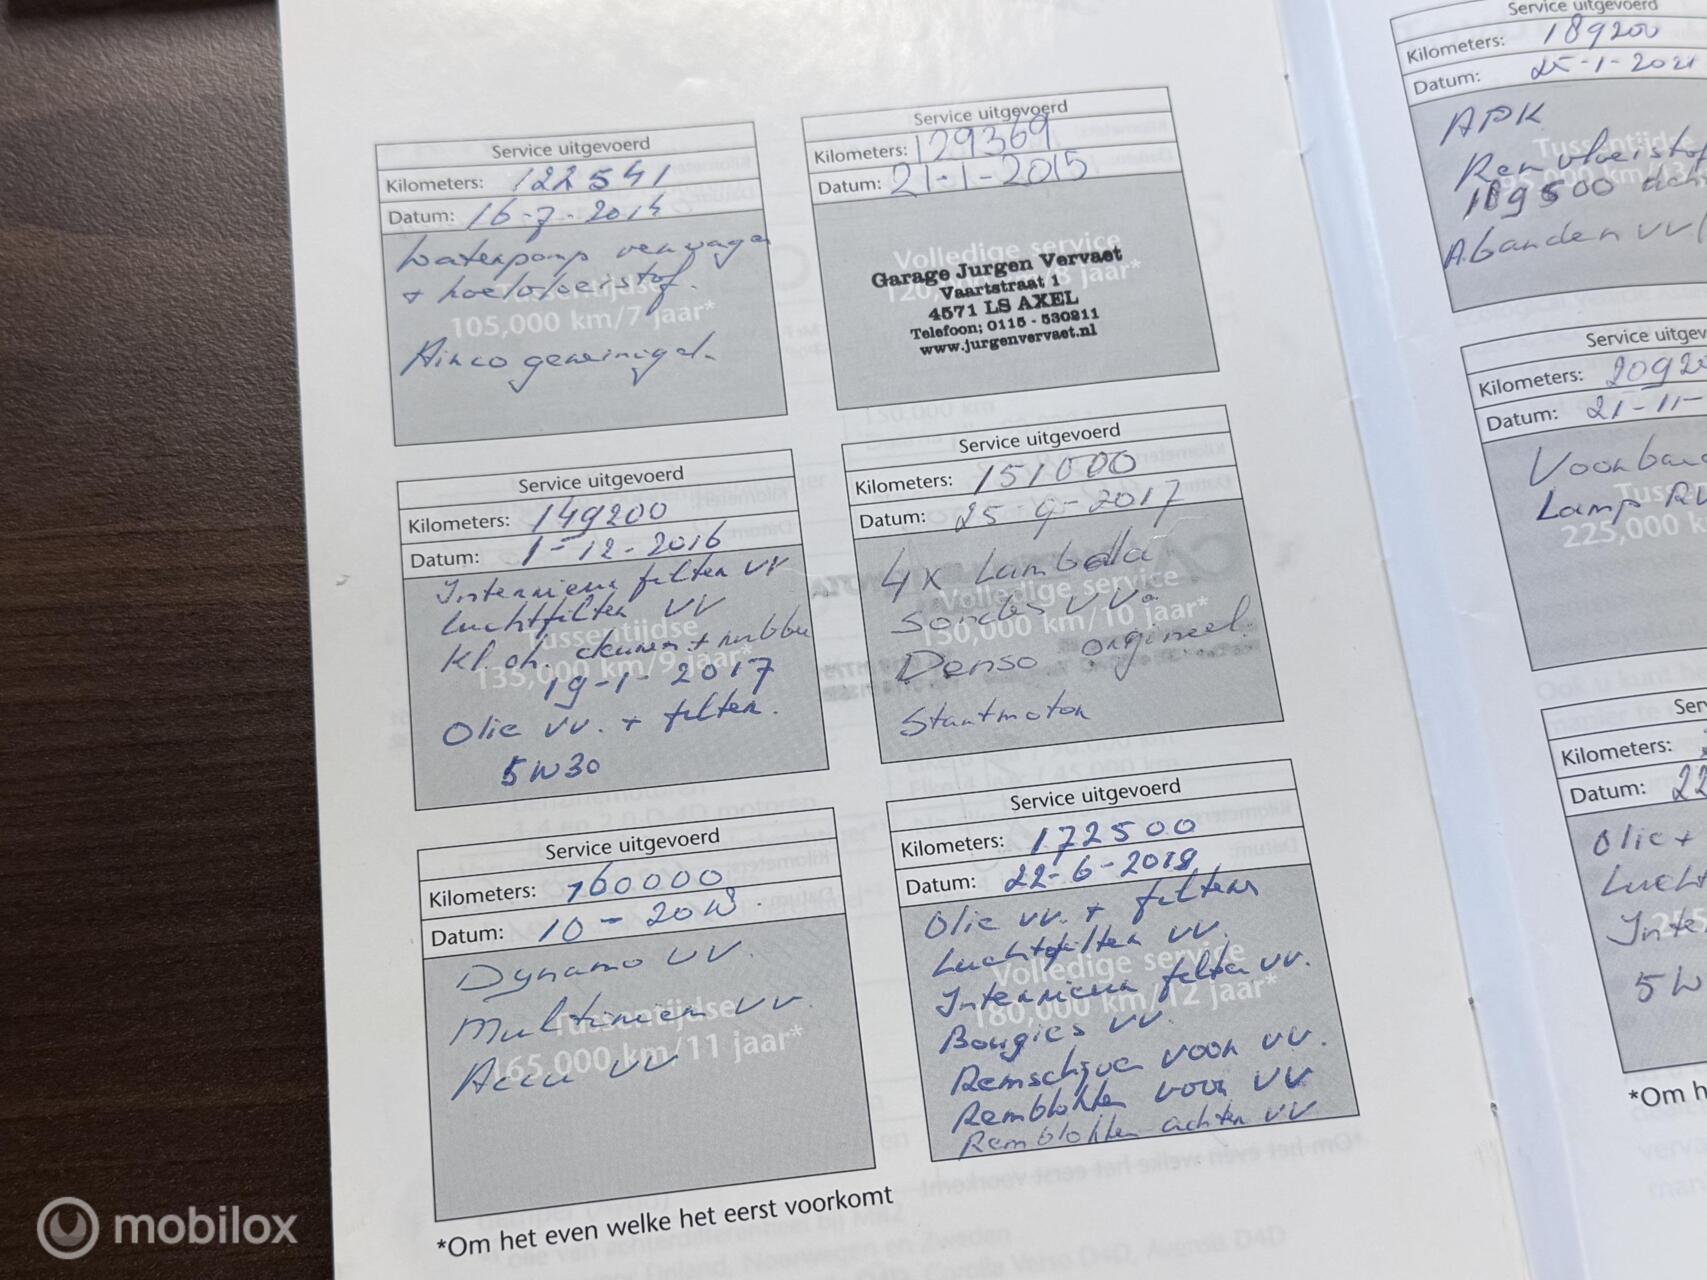 Service uitgevoerd
Kilometers: 122541
Datum: 16-7-2014
Waterpomp vervagen
+ koelvloeistof.
Tussentijdse
105,000 km/7 jaar*
Airco gereinigd.
Service uitgevoerd
Kilometers: 129369
Datum: 21-1-2015
Volledige service
120,000 km/8 jaar*
Garage Jurgen Vervaet
Vaartstraat 1
4571 LS AXEL
Telefoon; 0115 - 530211
www.jurgenvervaet.nl
Service uitgevoerd
Kilometers: 149200
Datum: 1-12-2016
Interrieur filter vv
Luchtfilter vv
Tussentijdse
Kl. oh. + rubber
135,000 km/9 jaar*
19-1-2017
Olie vv. + filter.
5W30
Service uitgevoerd
Kilometers: 151000
Datum: 25-9-2017
4x Lambda
Volledige service
Sondes vv.
150,000 km/10 jaar*
Denso orgineel.
Startmotor
Service uitgevoerd
Kilometers: 160000
Datum: 10-2018
Dynamo vv.
Multiriem vv.
Tussentijdse
165,000 km/11 jaar*
Accu vv
Service uitgevoerd
Kilometers: 172500
Datum: 22-6-2019
Olie vv. + filter
Luchtfilter vv.
Volledige service
Interrieur filter vv.
180,000 km/12 jaar*
Bougies vv.
Remschijven voor vv.
Remblokken voor vv
Remblokken achter vv
*Om het even welke het eerst voorkomt
Service uitgevoerd
Kilometers: 189200
Datum: 25-1-2021
APK
Tussentijdse
Remvloeistof
189500
A.banden vv
Service uitgev
Kilometers: 20920
Datum: 21-11-
Voorban
Lamp
Tussen
225,000 k
Ser
Kilometers:
Datum: 22
Olie +
Lucht
Inte
5W
*Om h
mobilox